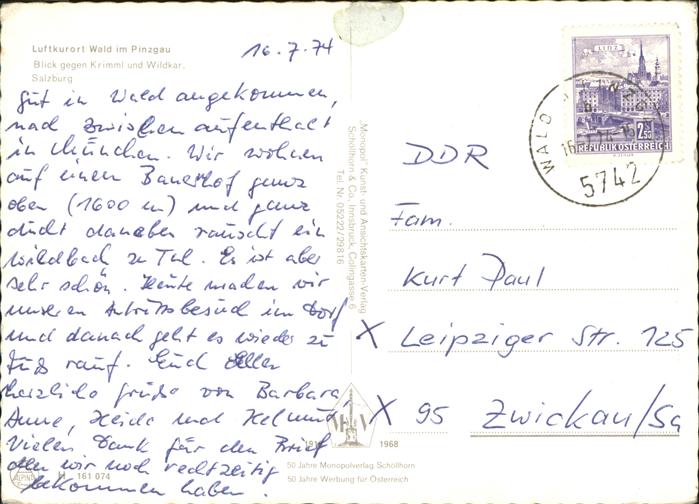 Luftkurort Wald im Pinzgau
Blick gegen Krimml und Wildkar,
Salzburg
16.7.74
Gut in Wald angekommen,
nach zwischen aufenthalt
in München. Wir wohnen
auf einem Bauerhof ganz
oben (1600 m) und ganz
dicht daneben rauscht ein
wildbach zu Tal. Es ist aber
sehr schön. Heute machen wir
unseren Antrittsbesuch im Dorf
und danach geht es wieder zu
Fuß rauf. Euch allen
herzliche grüße von Barbara,
Anne, Heide und Helmut
Vielen Dank für den Brief
den wir noch rechtzeitig
bekommen haben
H 161 074
„Monopol" Kunst- und Ansichtskarten-Verlag
Schöllhorn & Co., Innsbruck, Colingasse 6
Tel. Nr. 05222/29816
1918 1968
50 Jahre Monopolverlag Schöllhorn
50 Jahre Werbung für Österreich
LINZ
2.50
REPUBLIK ÖSTERREICH
WALD
5742
DDR
Fam.
Kurt Paul
X Leipziger Str. 125
X 95 Zwickau/Sa